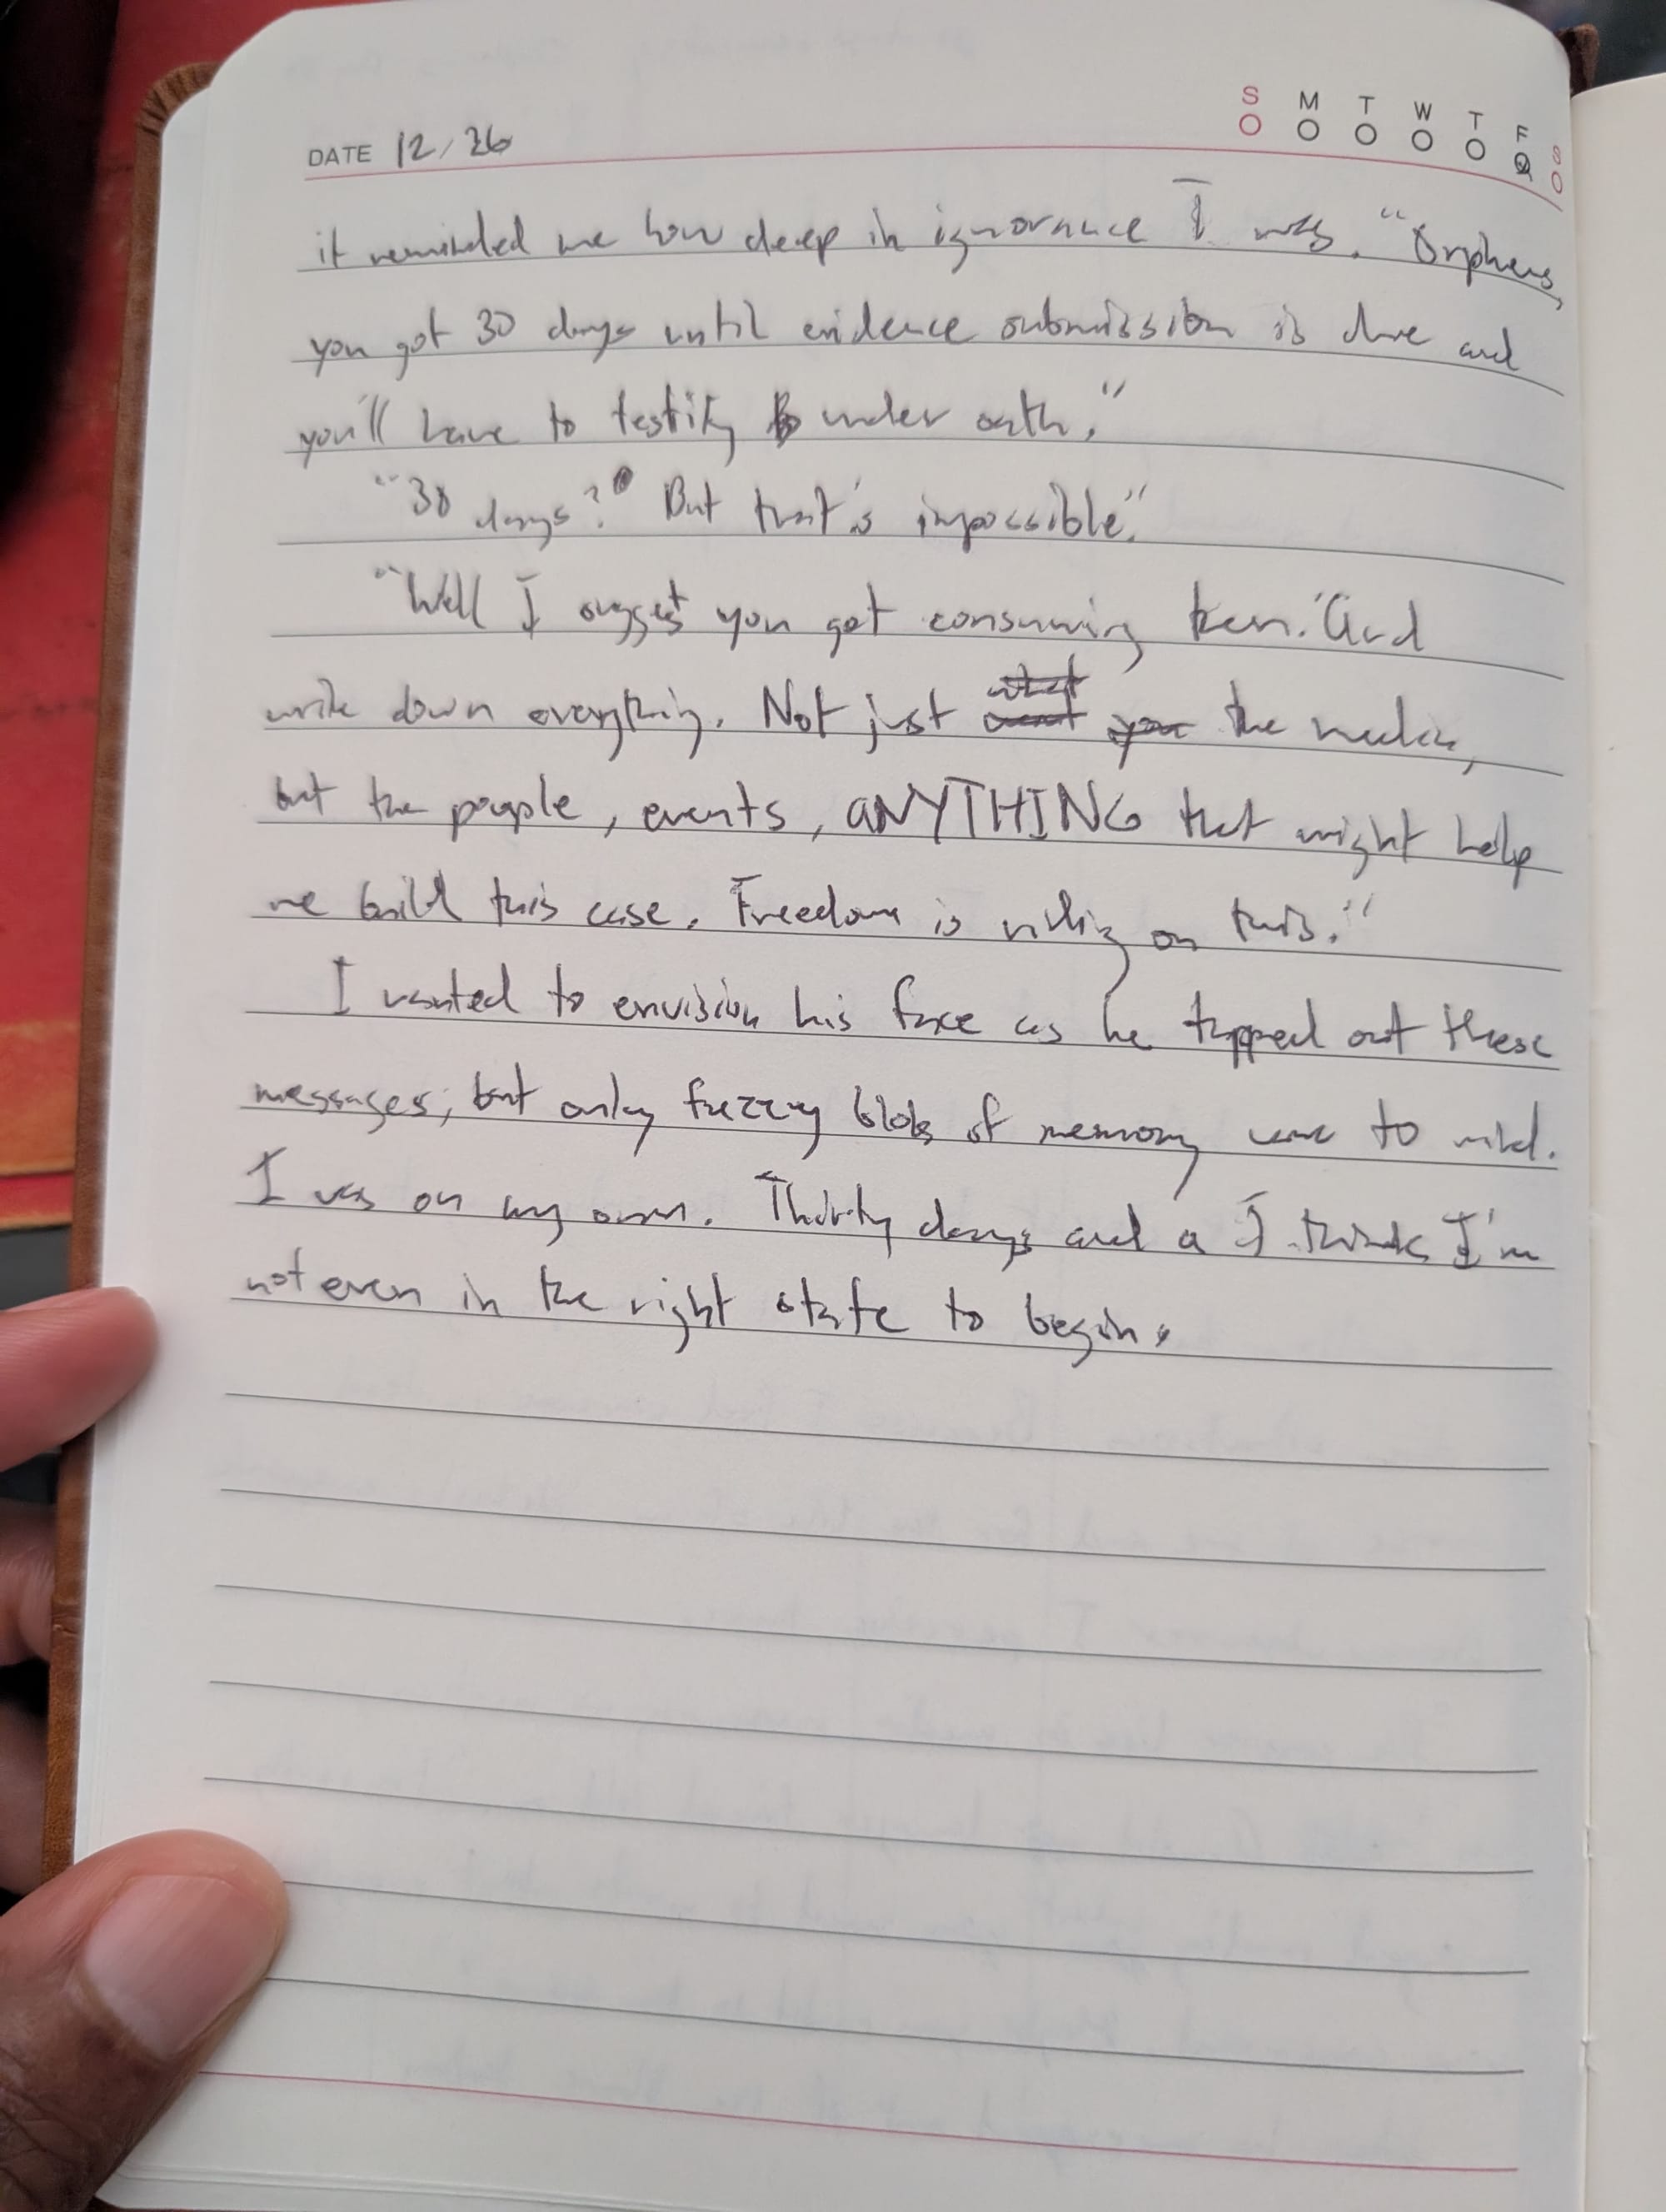 S M T W T F S
DATE 12/26
it reminded me how deep in ignorance I was. "Orpheus,
you got 30 days until evidence submission is due and
you'll have to testify under oath."
"30 days? But that's impossible".
"Well I suggest you get consuming then. And
write down everything. Not just what you the media,
but the people, events, ANYTHING that might help
me build this case. Freedom is riding on this."
I wanted to envision his face as he tapped out these
messages, but only fuzzy blobs of memory came to mind.
I was on my own. Thirty days and a I think I'm
not even in the right state to begin.